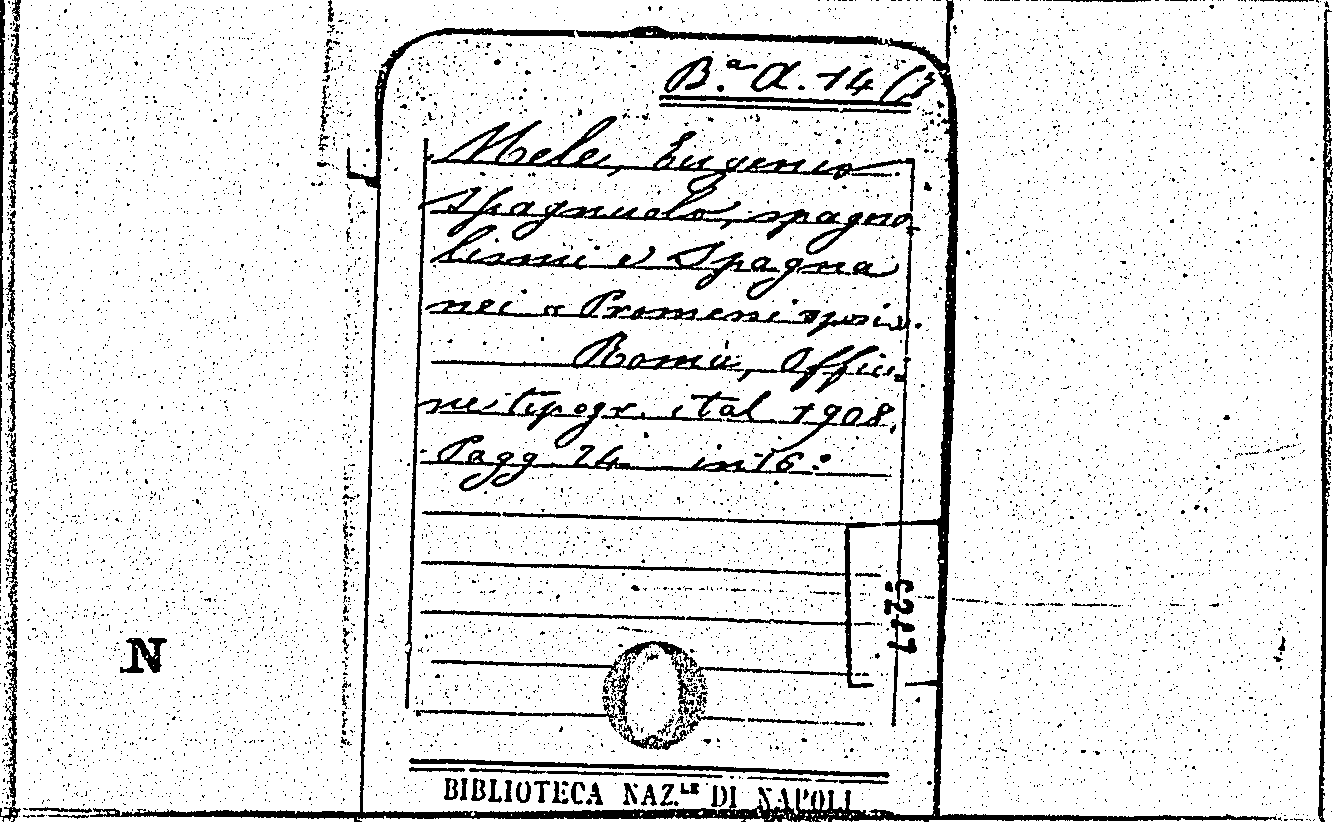 B.a A. 14 (3
Mele, Eugenio
Spagnuolo, spagno-
lismi e Spagna
nei « Promessi sposi ».
Roma, Offici-
ne tipogr. ital 1908.
Pagg. 24 in 16°
C247
N
BIBLIOTECA NAZ.LE DI NAPOLI